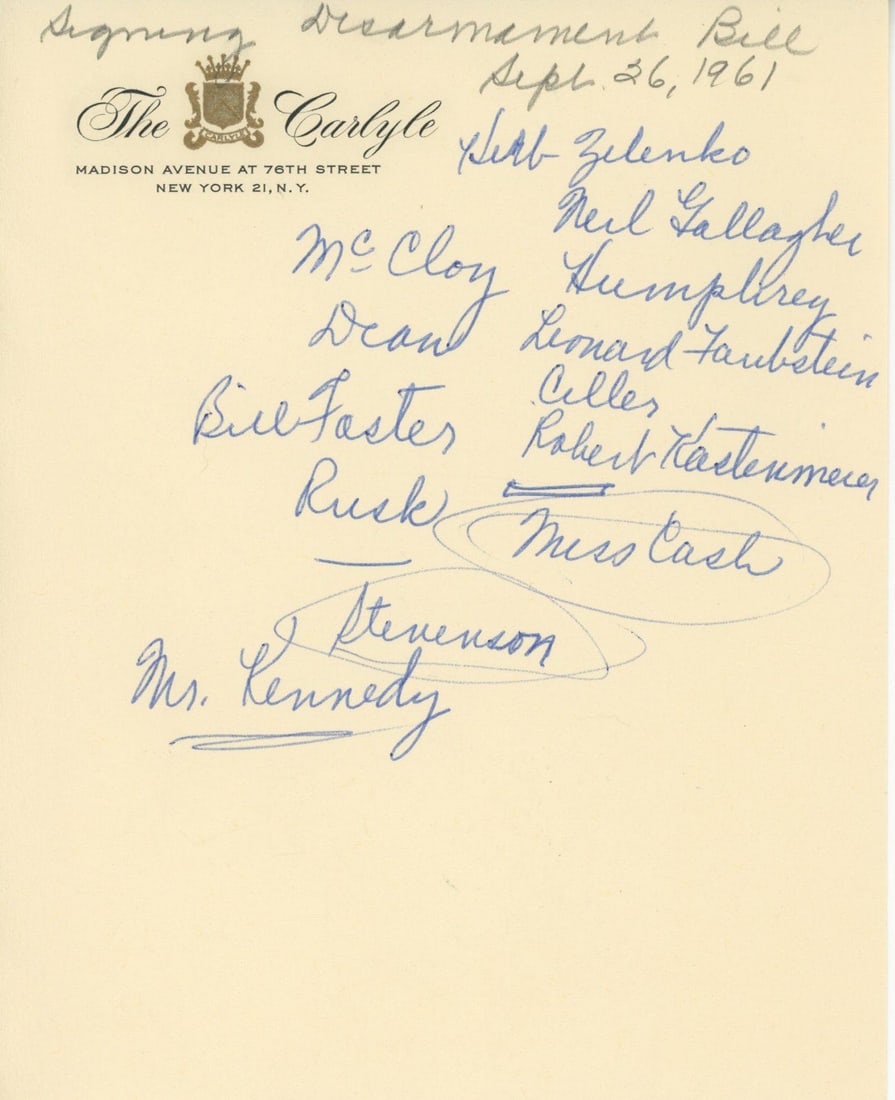 Signing Disarmament Bill
Sept. 26, 1961
The Carlyle
CARLYLE
MADISON AVENUE AT 76TH STREET
NEW YORK 21, N.Y.
Herb Zelenko
Neil Gallagher
McCloy Humphrey
Dean Leonard Farbstein
Celler
Bill Foster Robert Kastenmeier
Rusk
Miss Cash
Stevenson
Mr. Kennedy